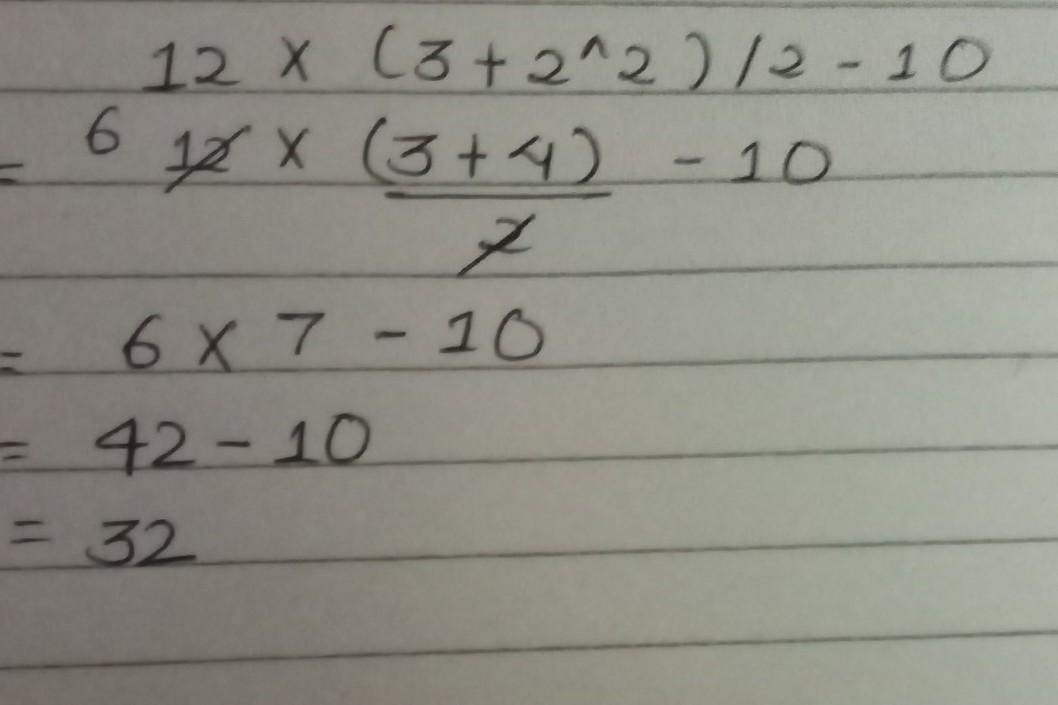 12 × (3+2^2)/2-10
= 6 12 × (3+4) - 10
2
= 6 × 7 - 10
= 42-10
= 32